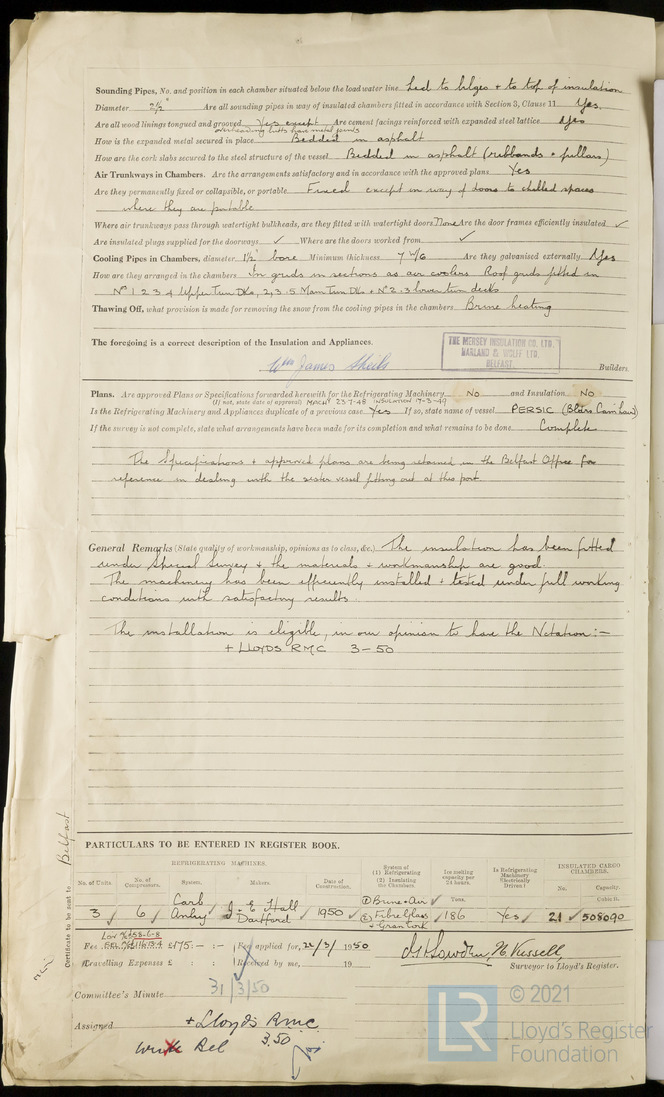 Sounding Pipes, No. and position in each chamber situated below the load water line Led to bilges + to top of insulation
Diameter 2½" Are all sounding pipes in way of insulated chambers fitted in accordance with Section 3, Clause 11 Yes.
Are all wood linings tongued and grooved Yes except Are cement facings reinforced with expanded steel lattice Yes
overheading butts have metal joints
How is the expanded metal secured in place Bedded in asphalt
How are the cork slabs secured to the steel structure of the vessel Bedded in asphalt (ribbands + pillars)
Air Trunkways in Chambers. Are the arrangements satisfactory and in accordance with the approved plans Yes
Are they permanently fixed or collapsible, or portable Fixed except in way of doors to chilled spaces
where they are portable
Where air trunkways pass through watertight bulkheads, are they fitted with watertight doors None Are the door frames efficiently insulated ✓
Are insulated plugs supplied for the doorways ✓ Where are the doors worked from ✓
Cooling Pipes in Chambers, diameter 1½" bore Minimum thickness 7 W/G Are they galvanised externally Yes
How are they arranged in the chambers In grids in sections as air coolers Roof grids fitted in
Nos 1 2 3 4 Upper Twn Dks, 2, 3 5 Main Twn Dks + No 2 3 lower twn decks
Thawing Off, what provision is made for removing the snow from the cooling pipes in the chambers Brine heating
The foregoing is a correct description of the Insulation and Appliances.
THE MERSEY INSULATION CO. LTD.
HARLAND & WOLFF LTD.
BELFAST.
Wm James Sheils Builders
Plans. Are approved Plans or Specifications forwarded herewith for the Refrigerating Machinery No and Insulation No
(If not, state date of approval) MACHY 23-7-48 INSULATION 17-3-49
Is the Refrigerating Machinery and Appliances duplicate of a previous case Yes If so, state name of vessel PERSIC
If the survey is not complete, state what arrangements have been made for its completion and what remains to be done. Complete
The Specifications + approved plans are being retained in the Belfast Office for
reference in dealing with the sister vessel fitting out at this port.
General Remarks (State quality of workmanship, opinions as to class, &c.) The insulation has been fitted
under Special Survey + the materials + workmanship are good.
The machinery has been efficiently installed + tested under full working
conditions with satisfactory results.
The installation is eligible, in our opinion to have the Notation:-
+ LLOYDS RMC 3-50
Certificate to be sent to Belfast
PARTICULARS TO BE ENTERED IN REGISTER BOOK.
REFRIGERATING MACHINES.
No. of Units. No. of Compressors. System. Makers. Date of Construction. System of (1) Refrigerating (2) Insulating the Chambers. Ice melting capacity per 24 hours. Is Refrigerating Machinery Electrically Driven? INSULATED CARGO CHAMBERS.
Tons. No. Capacity. Cubic ft.
3 6 Carb Anhy J & E Hall Dartford 1950 ① Brine + Air ② Fibreglass + Gran Cork 186 Yes 21 508090
Fee £175:-:- Fee applied for, 25/3/1950
Travelling Expenses £ : : Received by me, 19
Surveyor to Lloyd's Register.
Committee's Minute 31/3/50
Assigned +Lloyd's RMC
Write Bel 3.50
LR
© 2021
Lloyd's Register
Foundation